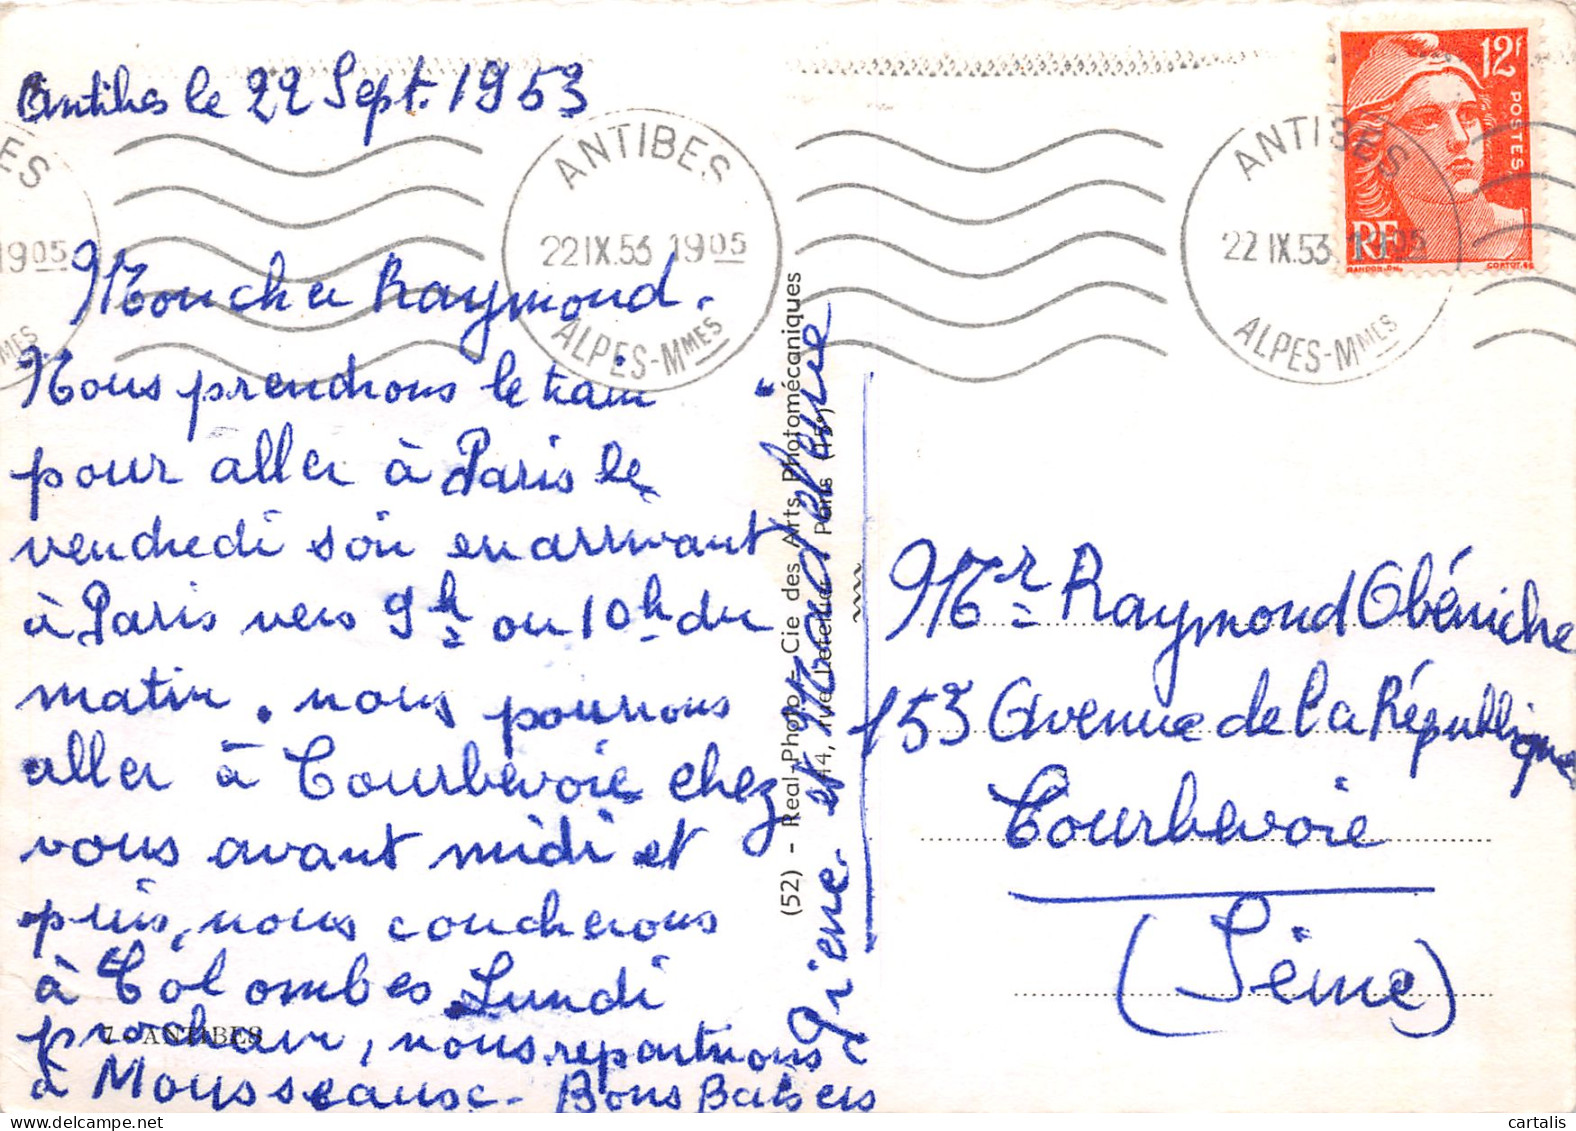 Antibes le 22 Sept. 1953
Mon cher Raymond.
Nous prendrons le train
pour aller à Paris le
vendredi soir en arrivant
à Paris vers 9h ou 10h du
matin. nous pourrons
aller à Courbevoie chez
vous avant midi et
puis, nous coucherons
à Colombes. Lundi
prochain, nous repartirons
à Mousseaux - Bons Baisers
et Madeleine
7 - ANTIBES
(52) - Real-Photo - Cie des Arts Photomécaniques
44, rue Letellier - Paris (15e)
ANTIBES
22 IX.53 1905
ALPES-MMES
ANTIBES
22 IX.53 1905
ALPES-MMES
ES
1905
MMES
12F
POSTES
RF
GANDON-DEL.
CORTOT.SC
Mr Raymond Obéniche
153 Avenue de la République
Courbevoie
(Seine)
cartalis